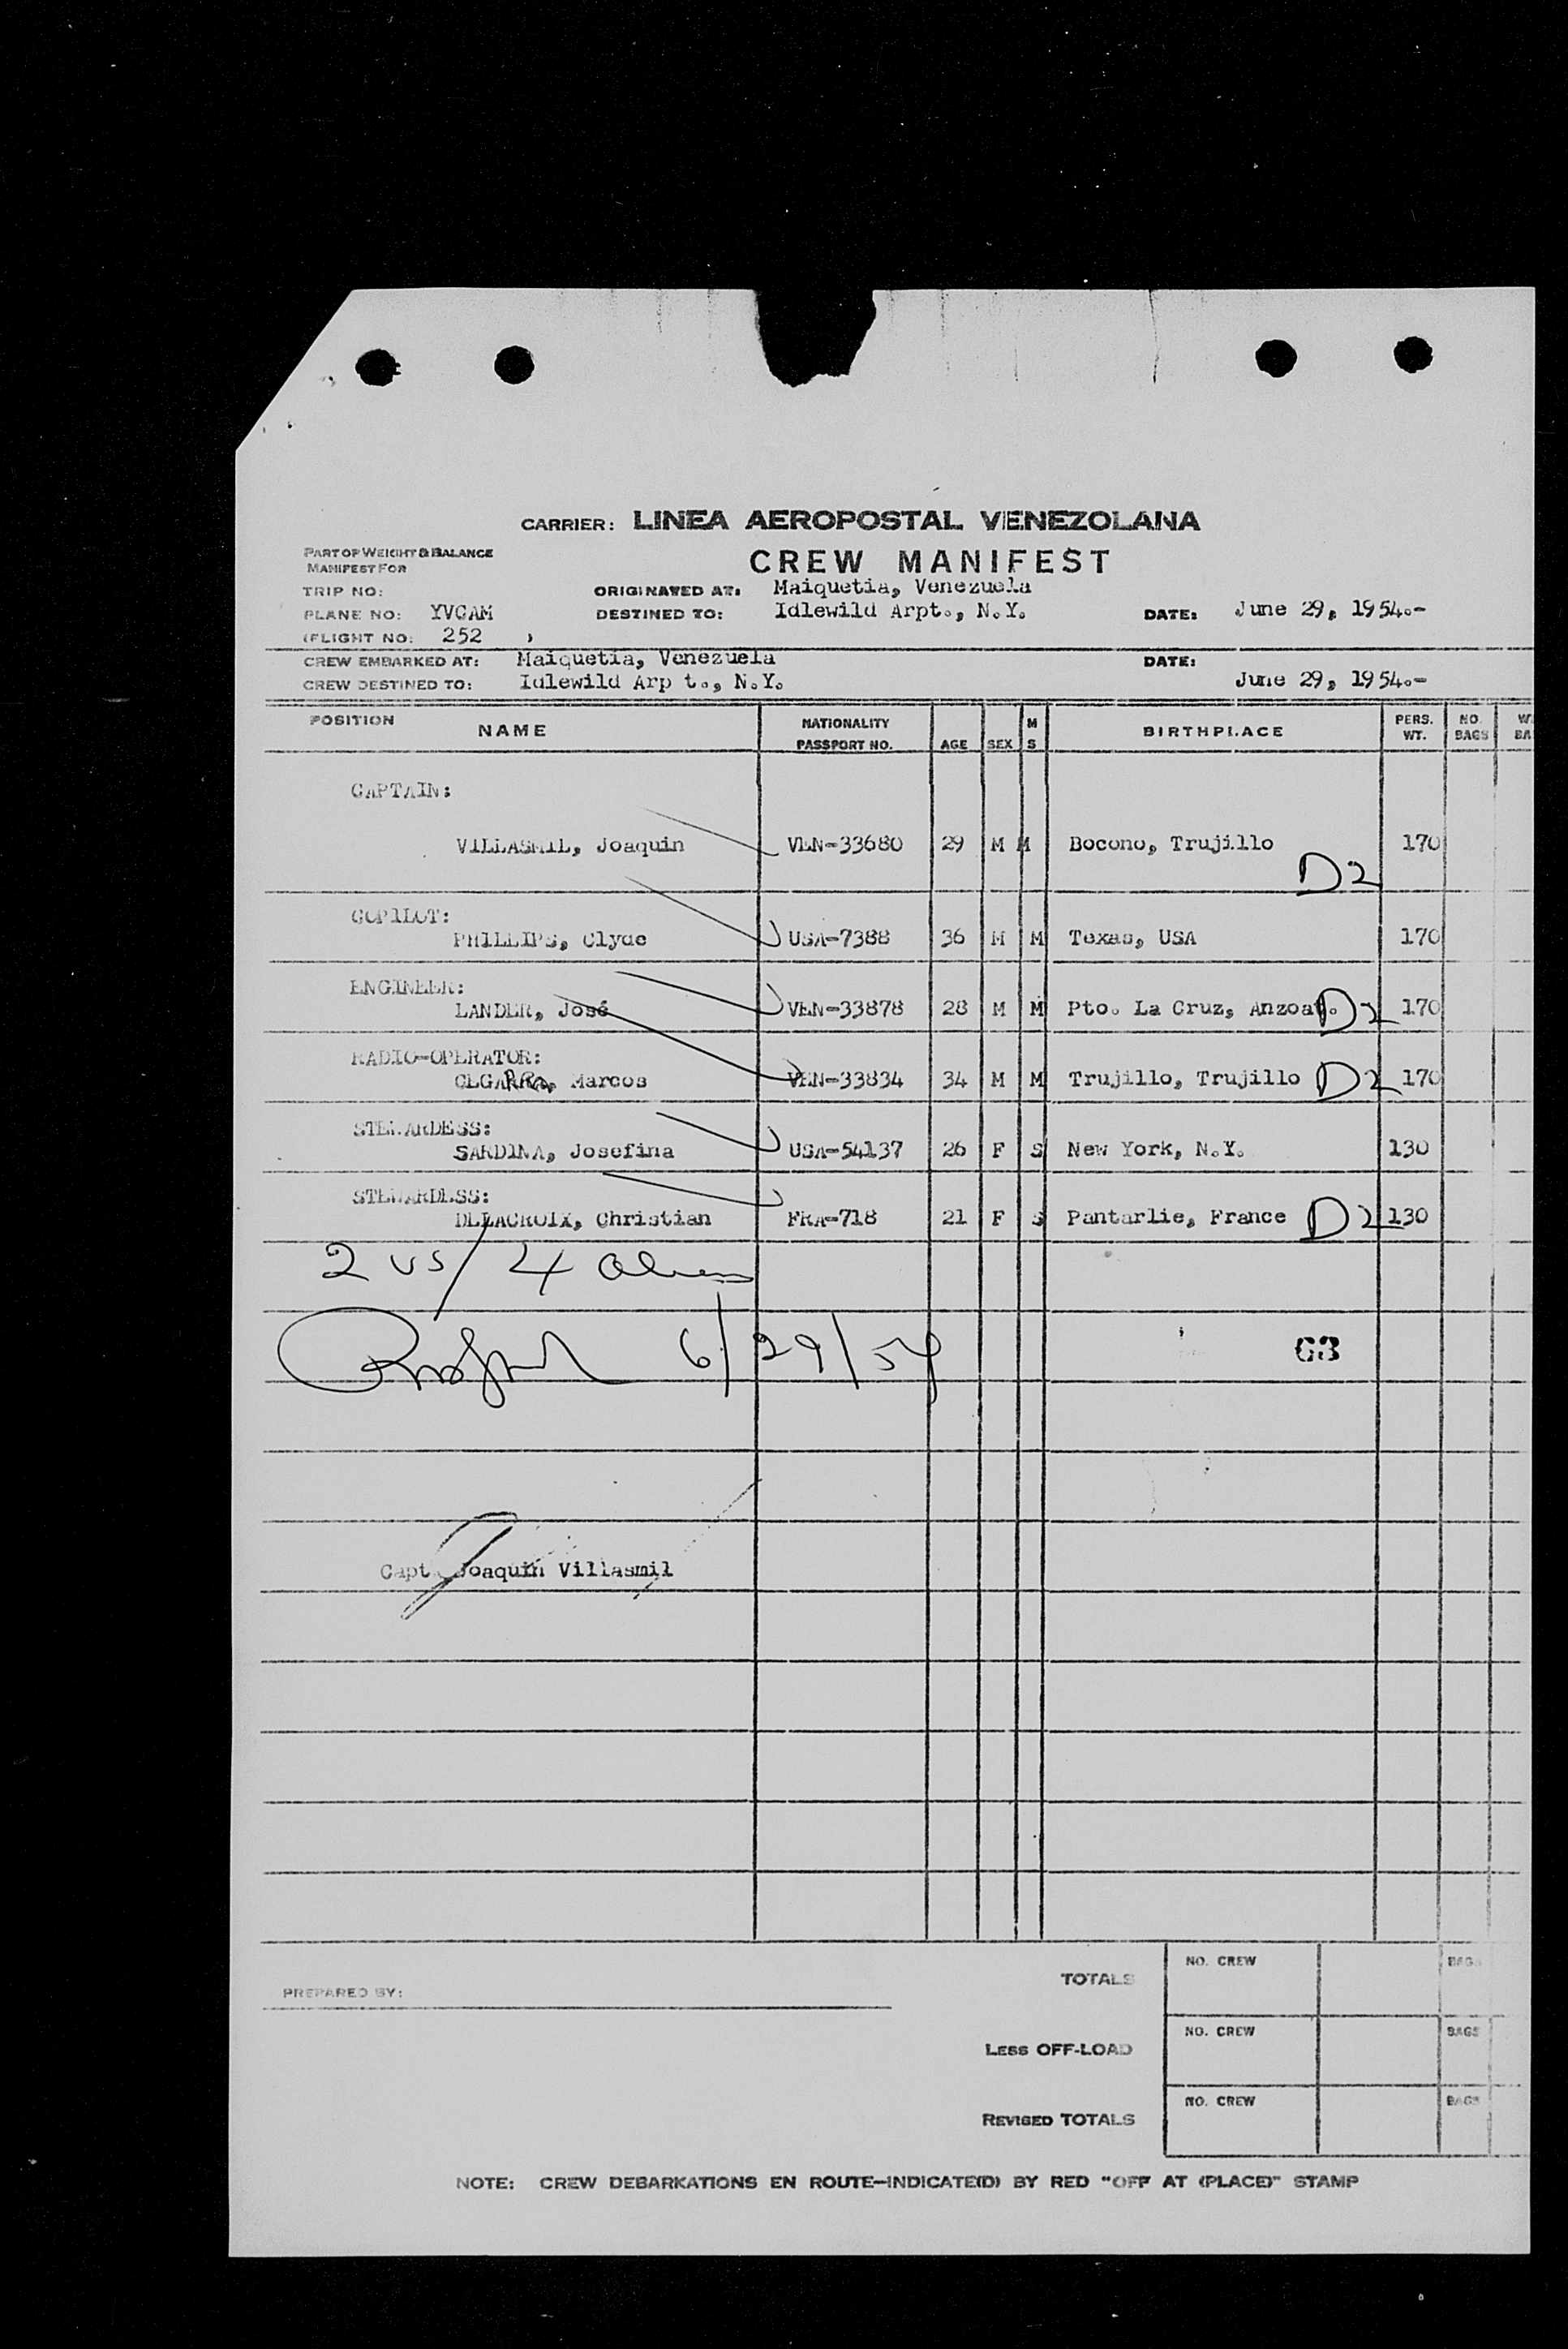 CARRIER: LINEA AEROPOSTAL VENEZOLANA
PART OF WEIGHT & BALANCE
MANIFEST FOR
CREW MANIFEST
TRIP NO:
ORIGINATED AT: Maiquetia, Venezuela
PLANE NO: YVCAM
DESTINED TO: Idlewild Arpt., N.Y.
DATE: June 29, 1954.-
(FLIGHT NO: 252 )
CREW EMBARKED AT: Maiquetia, Venezuela
DATE:
CREW DESTINED TO: Idlewild Arp t., N.Y.
June 29, 1954.-
POSITION NAME NATIONALITY PASSPORT NO. AGE SEX M S BIRTHPLACE PERS. WT. NO. BAGS
CAPTAIN:
VILLASMIL, Joaquin VEN-33680 29 M M Bocono, Trujillo 170
D2
COPILOT:
PHILLIPS, Clyde USA-7388 36 M M Texas, USA 170
ENGINEER:
LANDER, José VEN-33878 28 M M Pto. La Cruz, Anzoat. D2 170
RADIO-OPERATOR:
Marcos VEN-33834 34 M M Trujillo, Trujillo D2 170
STEWARDESS:
SARDINA, Josefina USA-54137 26 F S New York, N.Y. 130
STEWARDESS:
DELACROIX, Christian FRA-718 21 F S Pantarlie, France D2 130
2 US/ 4 aliens
6/29/54 63
Capt. Joaquin Villasmil
PREPARED BY:
TOTALS NO. CREW BAGS
LESS OFF-LOAD NO. CREW BAGS
REVISED TOTALS NO. CREW BAGS
NOTE: CREW DEBARKATIONS EN ROUTE—INDICATE(D) BY RED "OFF AT (PLACE)" STAMP